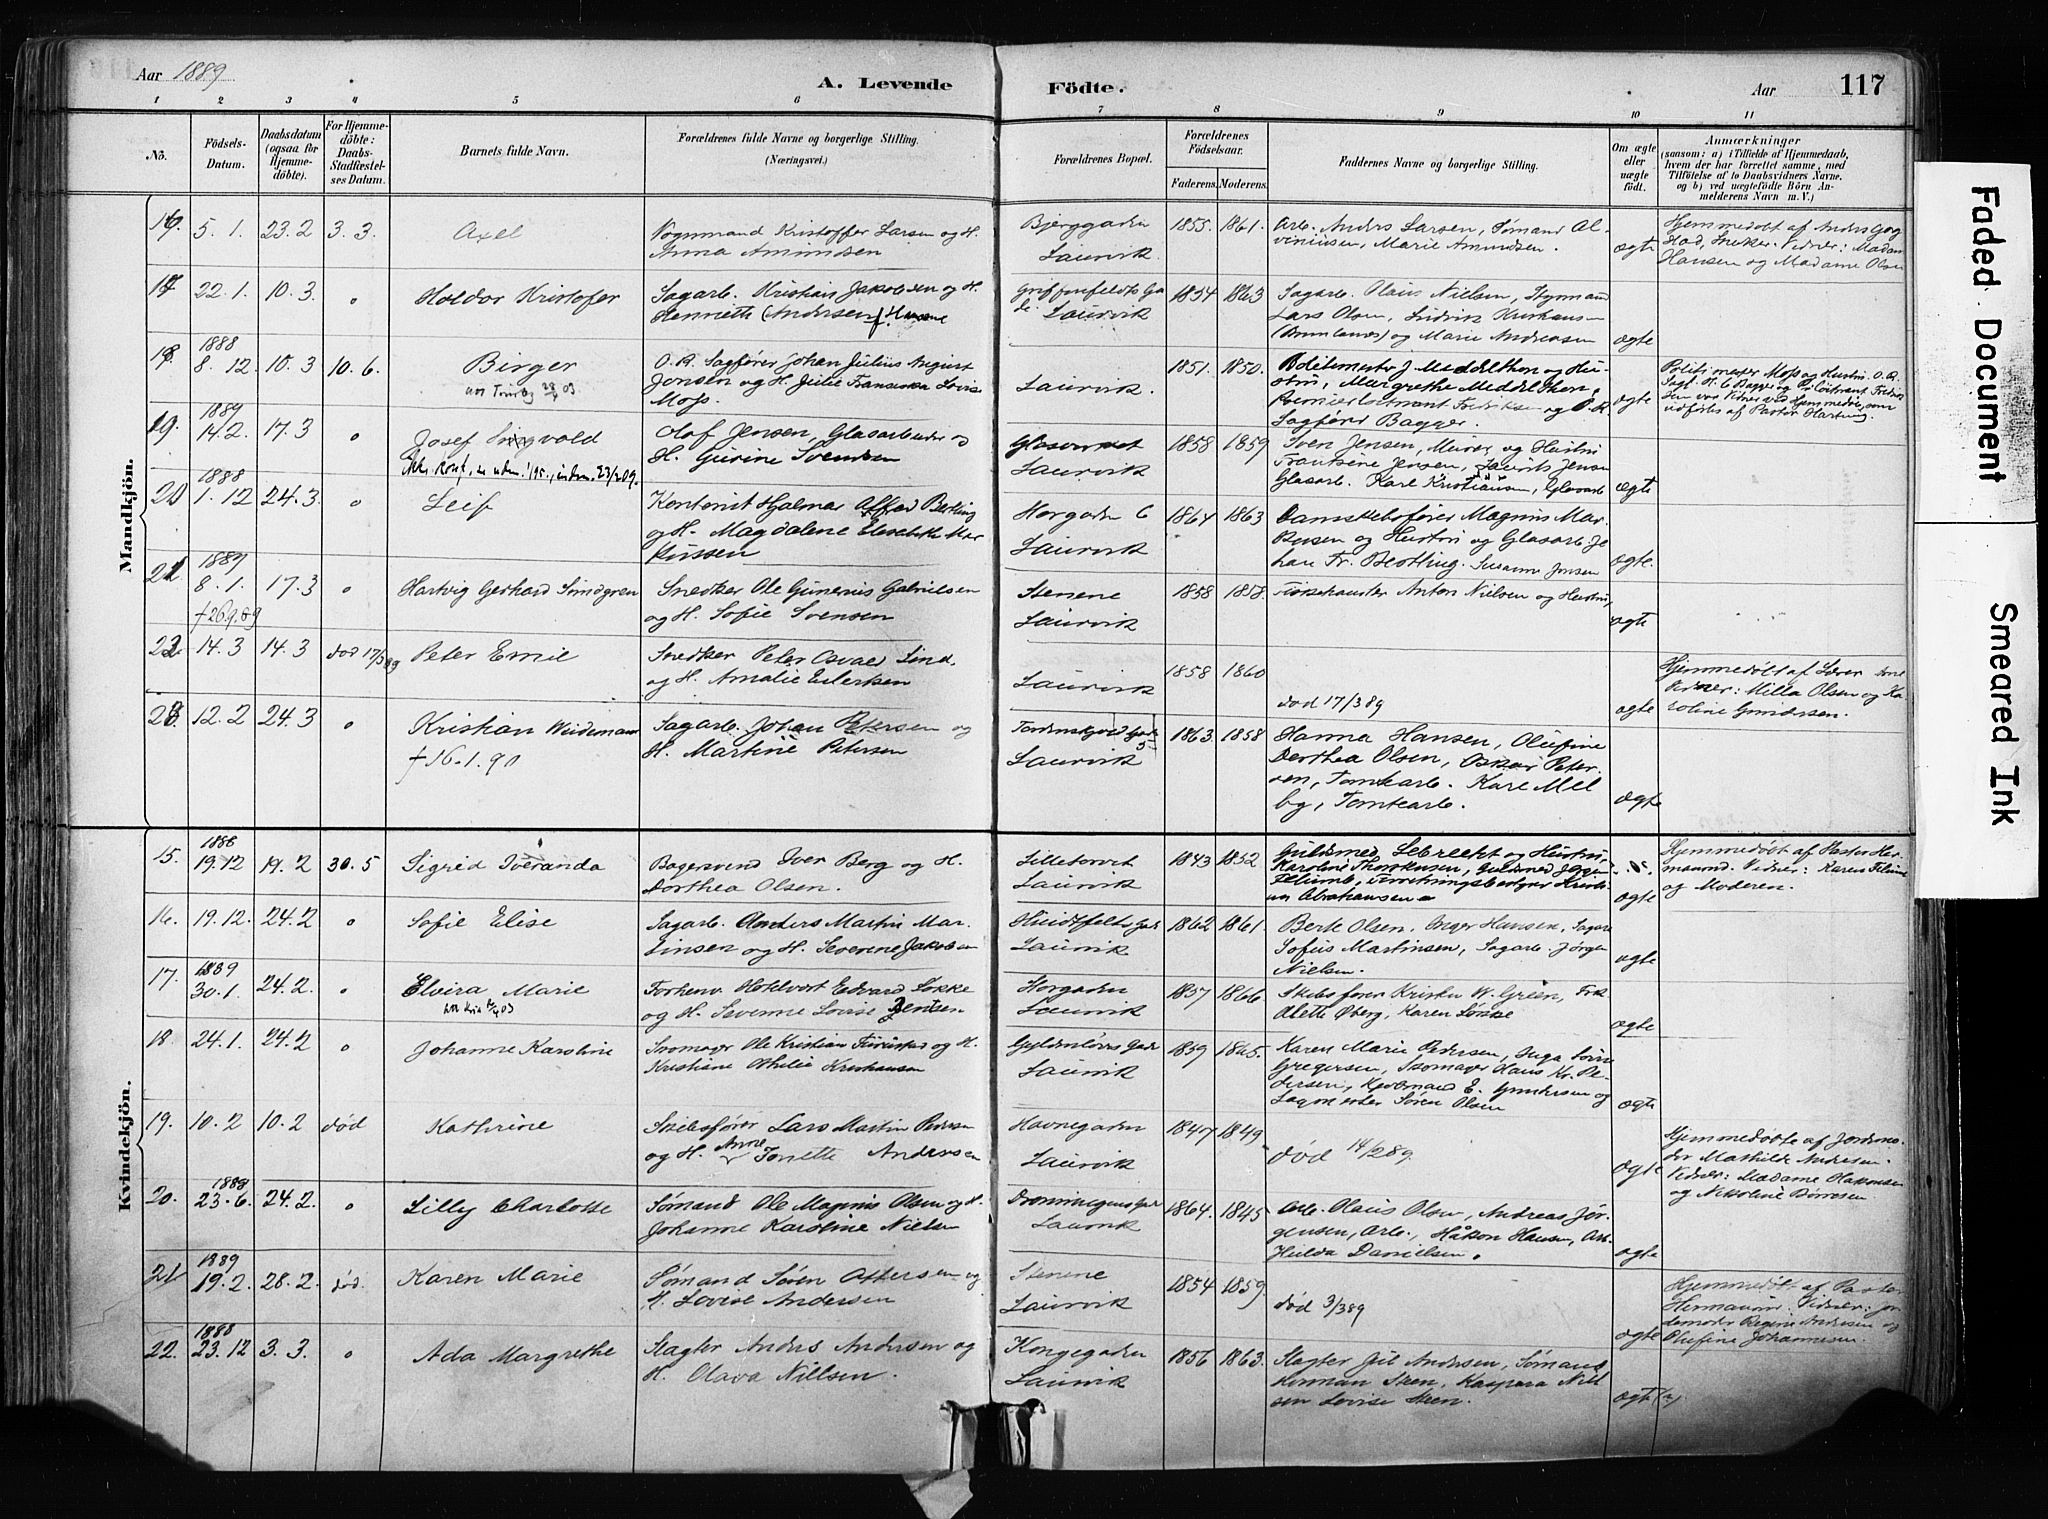 Aar 1889
A. Levende
Födte.
Aar
117
1 2 3 4 5 6 7 8 9 10 11
No.
Födsels-
Datum.
Daabsdatum
(ogsaa for
Hjemme-
döbte).
For Hjemme-
döbte:
Daabs-
Stadfæstel-
ses Datum.
Barnets fulde Navn.
Forældrenes fulde Navne og borgerlige Stilling.
(Næringsvei.)
Forældrenes Bopæl.
Forældrenes
Födselsaar.
Faderens.
Moderens.
Faddernes Navne og borgerlige Stilling.
Om ægte
eller
uægte
födt.
Anmærkninger
(saasom: a) i Tilfælde af Hjemmedaab,
hvem der har forrettet samme, med
Tilföielse af to Daabsvidners Navne,
og b) ved uægtefödte Börn An-
melderens Navn m. V.)
Mandkjön.
16. 5.1. 23.2 3.3. Axel
Vognmand Kristoffer Larsen og H.
Anna Amundsen
Bjerggaden
Laurvik.
1855. 1861.
Arb. Anders Larsen, Sømand Al-
viniusen, Marie Amundsen.
ægte
Hjemmedøbt af Anders
Snekker. Vidner: Madam
Hansen og Madame Olsen
17 22.1. 10.3. " Holdor Kristofer
Sagarb. Kristian Jakobsen og H.
Henriette (Andersen) Hansen
Griffenfeldts Ga
de Laurvik
1854 1863
Sagarb. Olaus Nielsen, Styrmand
Lars Olsen, Fredrik Kristiansen
(Brunlanes) og Marie Andreasen
ægte
18 1888
8.12. 10.3 10.6. Birger
O.R. Sagfører Johan Julius August
Jonsen og H. Julie Fransiska Lovise
Moss.
Laurvik.
1851. 1850.
Politimester J. Meddelthon og Hu-
stru, Margrethe Meddelthon,
Premierløitnant Fredriksen og O.R.
Sagfører Bagger.
ægte
Politimester Moss og Hustru. O.R.
Sagf. H. C. Bagger og Pr.løitnant Fredrik
sen var Vidner ved Hjemmedøb, som
udførtes af Pastor Hartvig.
19. 1889
14.2. 17.3 " Josef Sigvald
Olaf Jensen, Glasarbeider og
H. Gurine Svendsen
Glasværket
Laurvik
1858 1859
Sven Jensen, Murer og Hustru
Frantsine Jensen, Laurits Jensen
Glasarb. Karl Kristiansen, Glasarb
ægte
20 1888
1.12 24.3 " Leif
Kontorist Hjalmar Alfred Bertling
og H. Magdalene Elisabeth Mar
kussen
Horgaden 6
Laurvik
1864 1863
Damskibsfører Magnus Mar-
kusen og Hustru og Glasarb. Jo
han Fr. Bertling. Susanne Jensen
ægte.
21. 1889
8.1. 17.3 " Hartvig Gerhard Sundgren
†26.9.89
Snedker Ole Gunerius Gabrielsen
og H. Sofie Svensen
Stenene
Laurvik
1858 1858.
Anton Nielsen og Hustru,
ægte
22. 14.3 14.3 død 17/3 89 Peter Emil
Snedker Peter Osvald Lind,
og H. Amalie Eilertsen
Laurvik
1858 1860
død 17/3 89
ægte
Hjemmedøbt af Lærer
Vidner: Milla Olsen og Ka
roline Gundersen.
23. 12.2 24.3 " Kristian Weidemann
†16.1.90
Sagarb. Johan Petersen og
H. Martine Petersen
Tordenskjold Gade
5
Laurvik
1863. 1858
Hanna Hansen, Olufine
Dorthea Olsen, Oskar Peter-
sen, Tomtearb. Karl Mel
by, Tomtearb.
ægte
Kvindekjön.
15. 1888
19.12 19.2 30.5 Sigrid Iveranda
Bagersvend Iver Berg og H.
Dorthea Olsen.
Lilletorvet
Laurvik
1843 1852
Guldsmed Lebrecht og Hustru,
Karoline Thorstensen, Guldsmed Jørgen
Abrahamsen
ægte
Hjemmedøbt af Pastor Her-
mannd. Vidner: Karen
og Moderen.
16. 19.12. 24.2 " Sofie Elise
Sagarb. Anders Martin Mar-
tinsen og H. Severine Jakobsen
Huidtfeltsgade
Laurvik
1862 1861.
Berte Olsen, Inger Hansen, Sagarb
Sofus Martinsen, Sagarb. Jørgen
Nielsen.
ægte
17. 1889
30.1. 24.2. " Elvira Marie
Forhenv. Hotelvert Edvard Løkke
og H. Severine Lovise Jentsen
Horgaden
Laurvik
1857 1866
Skibsfører Kristen W. Grøen, Frk
Alette Øberg, Karen Løkke
ægte
18. 24.1. 24.2 " Johanne Karoline
Skomager Ole Kristian Furustad og H.
Kristiane Othilie Kristiansen
Gyldenløves Gade
Laurvik
1859 1865.
Karen Marie Pedersen, Inga Sørine
Gregersen, Skomager Hans Kr. Pe-
dersen, Kjøbmand E. Gundersen og
Sagmester Søren Olsen
ægte
19. 10.2 10.2 død Kathrine
Skibsfører Lars Martin Pedersen
og H. Anne Tonette Andersen
Havnegaden
Laurvik
1847 1849
død 14/2 89.
ægte
Hjemmedøbte af Jordmo-
der Mathilde Andersen.
Vidner: Madame Hakonsen
og Nikoline Børresen
20. 1888
23.6. 24.2. " Lilly Charlotte
Sømand Ole Magnus Olsen og H.
Johanne Karoline Nielsen
Dronningensgade
Laurvik
1864. 1845
Arb. Olaus Olsen, Andreas Jør-
gensen, Arb., Håkon Hansen, Arb.
Hulda Danielsen.
ægte
21 1889
19.2. 28.2. død. Karen Marie
Sømand Søren Ottersen og
H. Lovise Andersen
Stenene
Laurvik
1854 1859.
død 3/3 89
ægte
Hjemmedøbt af Pastor
Hermannd. Vidner: Jor
demoder Regine Andersen og
Olufine Johannesen.
22. 1888
23.12 3.3. " Ada Margrethe
Slagter Anders Andersen og
H. Olava Nielsen.
Kongegaden
Laurvik
1856 1863.
Slagter Juel Andersen, Sømand
Herman Steen, Kaspara Niel
sen Lovise Steen.
ægte
Faded Document
Smeared Ink